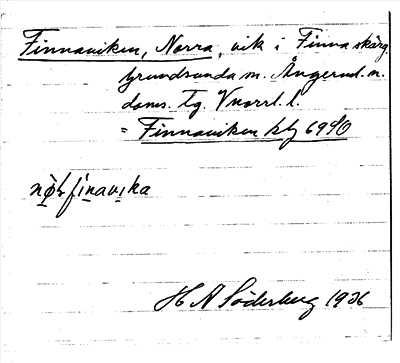 Finnaviken, Norra, vik i Finna skärg.
Grundsunda sn. Ångerml. n.
doms. Tg. Vnorrl. l.
= Finnaviken kbl 6990
nø̀ʈfinavıka
H A Söderberg 1936